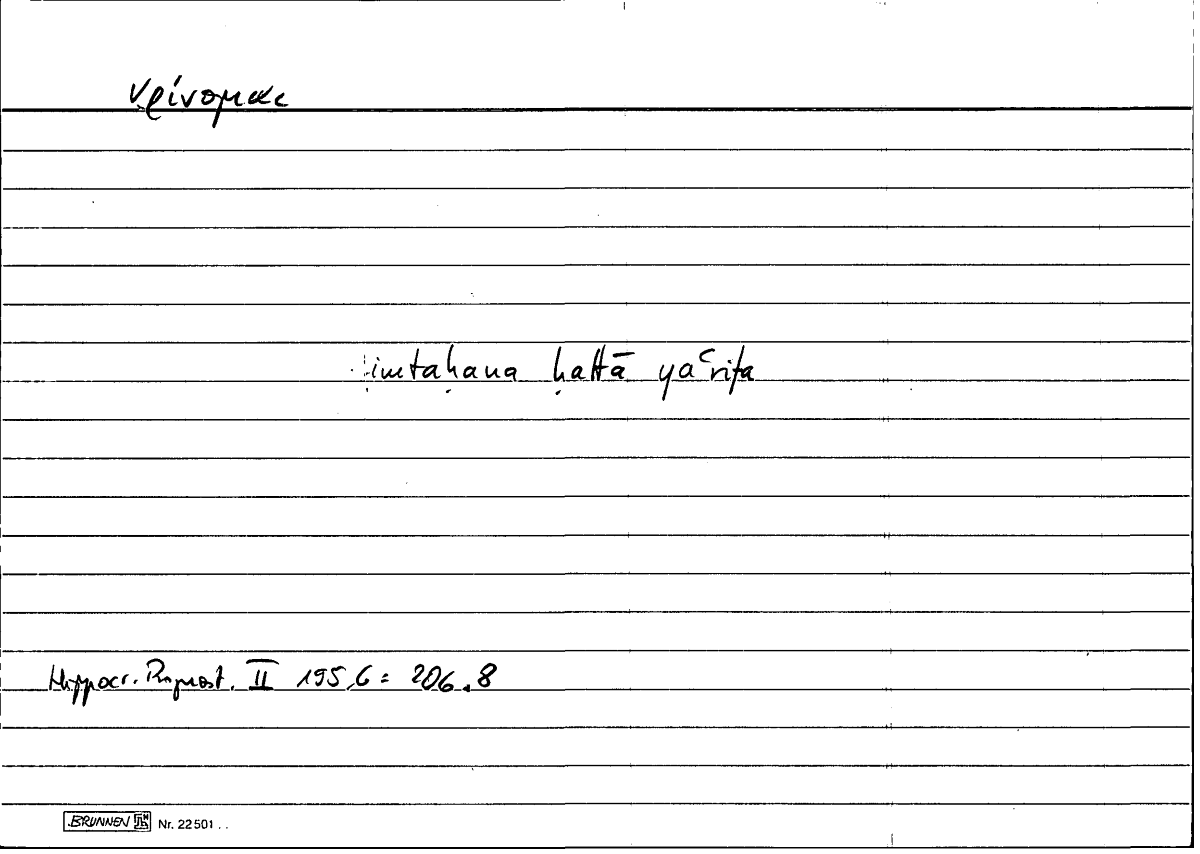 κρίνομαι
imtaḥana ḥattā yaʿrifa
Hippocr. Prognost. II 195,6 = 206.8
BRUNNEN Nr. 22501 . .